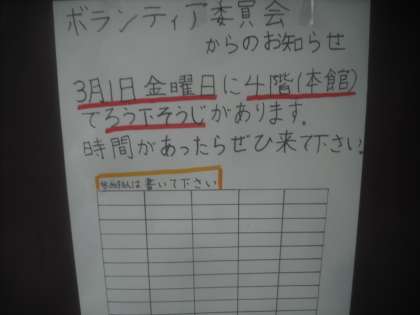 ボランティア委員会
からのお知らせ
3月1日金曜日に4階(本館)
でろう下そうじがあります.
時間があったらぜひ来て下さい.
は書いて下さい